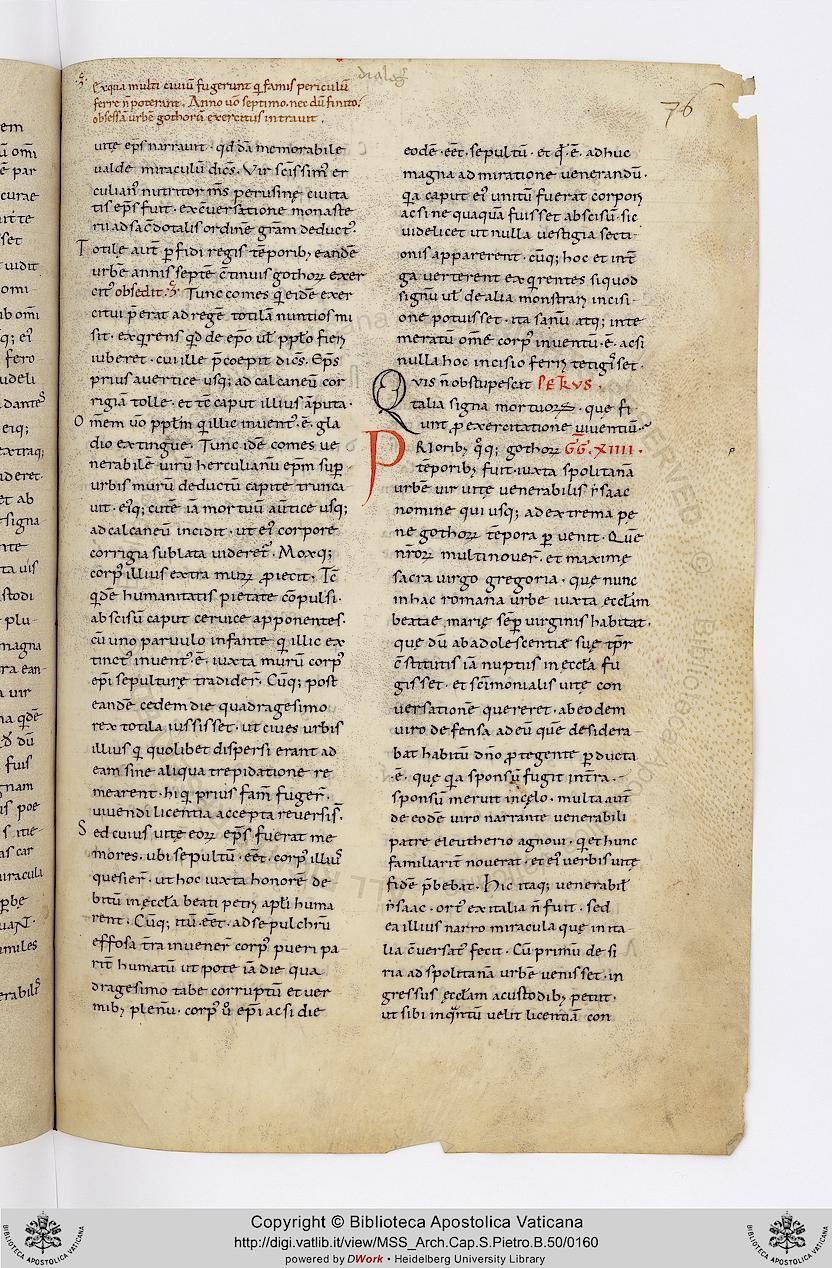 dialog
76
Ex qua multi civiū fugerunt q famis periculū
ferre ñ poterant. Anno uo septimo. nec dū finito.
obsessā urbē gothorū exercitus intrauit.
uite ep̄s narrauit. qd̄ dā memorabile
ualde miraculū dic̄s. Vir sc̄issim' er
culian' nutritor m̄s perusinę ciuita
tis ep̄s fuit. ex c̄uersatione monaste
rii ad sac̄dotalis ordinē gr̄am deduct'.
Totilę aut̄ perfidi regis tēporib; eandē
urbē annis septē c̄tinuis gothoꝝ exer
cit' obsedit. Tunc comes q eidē exer
citui p̄erat ad regē totilā nuntios mi
sit. exq̄rens qd̄ de ep̄o ul̄ pp̄lo fieri
iuberet. cui ille p̄coepit dic̄s. Ep̄s
prius a uertice usq; ad calcaneū cor
rigiā tolle. et tc̄ caput illius āputa.
Om̄em uo pp̄lm̄ q illic inuent' ē. gla
dio extingue. Tunc idē comes ue
nerabilē uirū herculianū ep̄m sup
urbis murū deductū capite trunca
uit. ei'q; cutē iā mortuū a uertice usq;
ad calcaneū incidit. ut ei' corpore
corrigia sublata uideret. Moxq;
corp' illius extra muꝝ ꝓiecit. Tc̄
qdē humanitatis pietate cōpulsi.
abscisū caput ceruice apponentes.
cū uno paruulo infante q illic ex
tinct' inuent' ē. iuxta murū corp'
ep̄i sepulturę tradider̄. Cūq; post
eandē cędem die quadragesimo
rex totila iussisset. ut ciues urbis
illius q quolibet dispersi erant ad
eam sine aliqua trepidatione re
mearent. hi q prius famē fuger̄.
uiuendi licentia accepta reuersi s̄.
Sed cuius uitę eoꝝ ep̄s fuerat me
mores. ubi sepultū eēt corp' illius
quesier̄. ut hoc iuxta honorē de
bitū in ęccl̄a beati petri apl̄i huma
rent. Cūq; itū eēt. ad sepulchrū
effosa t̄ra inuener̄ corp' pueri pa
rit̄ humatū ut pote iā die qua
dragesimo tabe corruptū et uer
mib; plenū. corp' ū ep̄i ac si die
eodē eēt sepultū. et qd̄ ē adhuc
magna admiratione uenerandū.
qa caput ei' unitū fuerat corpori
ac si nequaquā fuisset abscisū. sic
uidelicet ut nulla uestigia secti
onis apparerent. cūq; hoc et in t̄
ga uerterent exq̄rentes si quod
signū ul̄ de alia monstrari incisi
one potuisset. ita sanū atq; inte
meratū om̄e corp' inuentū ē. acsi
nulla hoc incisio ferri tetigisset.
Quis ñ obstupescat PETRVS.
talia signa mortuoꝝ. que fi
unt ꝓ exercitatione uiuentiū.
PRiorib; q̄q; gothoꝝ GG. XIIII.
tēporib; fuit iuxta spolitanā
urbē uir uitę uenerabilis ysaac
nomine qui usq; ad extrema pę
ne gothoꝝ tēpora peruenit. Quē
nr̄oꝝ multi nouer̄. et maximę
sacra uirgo gregoria. quę nunc
in hac romana urbe iuxta eccl̄am
beatae marię semp uirginis habitat.
que dū ab adolescentiæ suę tp̄r
c̄stitutis iā nuptiis in eccl̄a fu
gisset. et sc̄imonialis uitę con
uersationē quereret. ab eodem
uiro defensa ad eū quē desidera
bat habitū dn̄o ꝓtegente perducta
ē. quę qa sponsū fugit int̄ra.
sponsū meruit in cęlo. multa aut̄
de eodē uiro narrante uenerabili
patre eleutherio agnoui. q et hunc
familiarit̄ nouerat. et ei' uerbis uitę
fidē p̄bebat. Hic itaq; uenerabil'
ysaac. ort' ex italia ñ fuit. sed
ea illius narro miracula que in ita
lia c̄uersat' fecit. Cū primū de si
ria ad spolitanā urbē uenisset. in
gressus ęccl̄am a custodib; petiit.
ut sibi inq̄ntū uelit licentiā con
Copyright © Biblioteca Apostolica Vaticana
http://digi.vatlib.it/view/MSS_Arch.Cap.S.Pietro.B.50/0160
powered by DWork • Heidelberg University Library
BIBLIOTECA APOSTOLICA VATICANA
BIBLIOTECA APOSTOLICA VATICANA